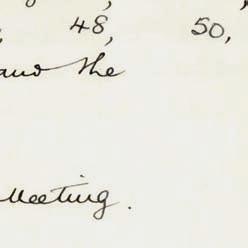 48, 50,
and the
Meeting.